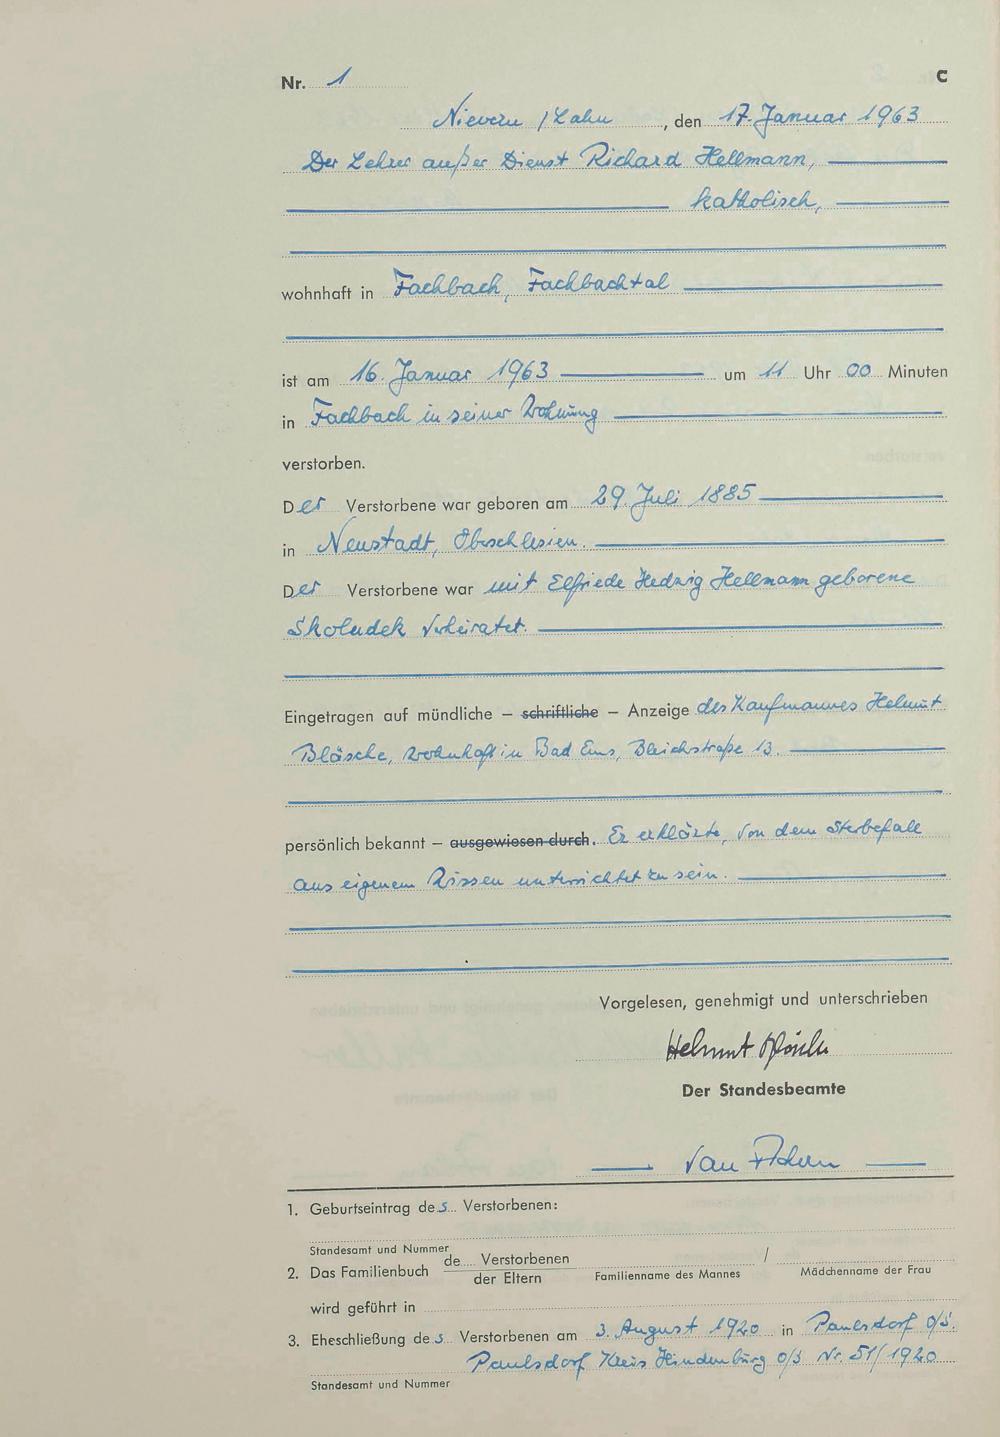 Nr. 1 C
Nievern / Lahn, den 17. Januar 1963
Der Lehrer außer Dienst Richard Hellmann,
katholisch,
wohnhaft in Fachbach, Fachbachtal
ist am 16. Januar 1963 um 11 Uhr 00 Minuten
in Fachbach in seiner Wohnung
verstorben.
Der Verstorbene war geboren am 29. Juli 1885
in Neustadt, Oberschlesien.
Der Verstorbene war mit Elfriede Hedwig Hellmann geborene
Skoludek verheiratet.
Eingetragen auf mündliche – schriftliche – Anzeige des Kaufmannes Helmut
Bläsche, wohnhaft in Bad Ems, Bleichstraße 13.
persönlich bekannt – ausgewiesen durch. Er erklärte, von dem Sterbefall
aus eigenem Wissen unterrichtet zu sein.
Vorgelesen, genehmigt und unterschrieben
Helmut Bläsche
Der Standesbeamte
van
1. Geburtseintrag des Verstorbenen:
Standesamt und Nummer
2. Das Familienbuch de Verstorbenen / der Eltern Familienname des Mannes / Mädchenname der Frau
wird geführt in
3. Eheschließung des Verstorbenen am 3. August 1920 in Paulsdorf O/S.
Paulsdorf Kreis Hindenburg O/S Nr. 51/1920
Standesamt und Nummer